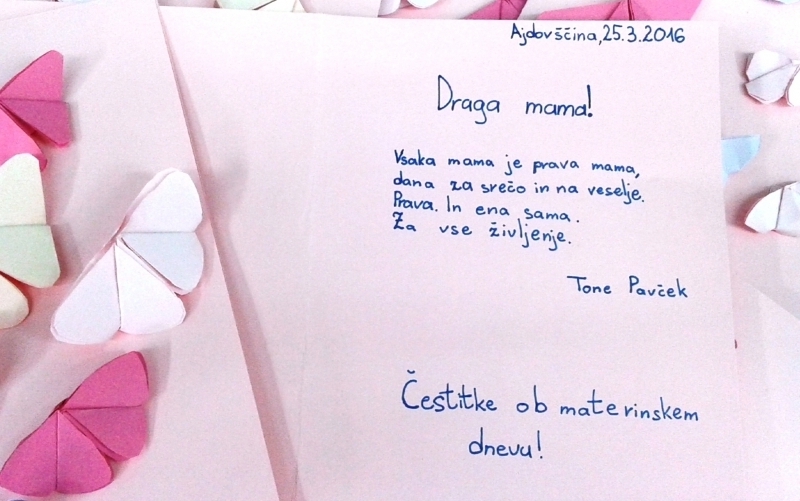 Ajdovščina, 25.3.2016
Draga mama!
Vsaka mama je prava mama,
dana za srečo in na veselje.
Prava. In ena sama.
Za vse življenje.
Tone Pavček
Čestitke ob materinskem
dnevu!